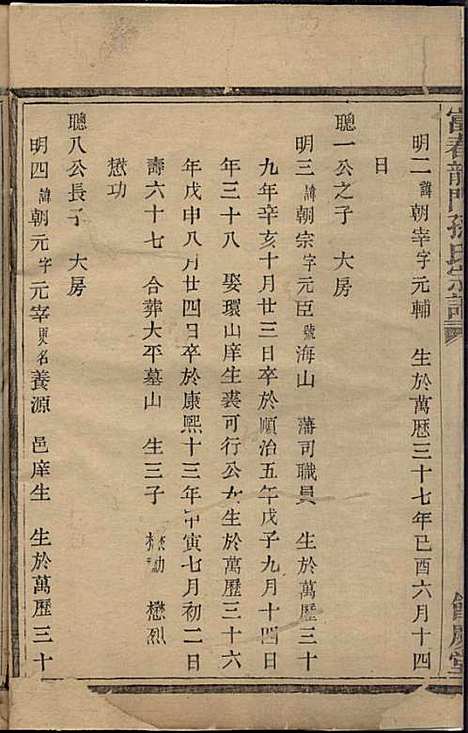 富春龍門孫氏宗譜
餘慶堂
明二諱朝宰字元輔 生於萬歷三十七年己酉六月十四
日
聰一公之子 大房
明三諱朝宗字元臣號海山 藩司職員 生於萬歷三十
九年辛亥十月廿三日卒於順治五年戊子九月十四日
年三十八 娶環山庠生裘可行公女生於萬歷三十六
年戊申八月廿四日卒於康熙十三年甲寅七月初二日
壽六十七 合葬大平墓山 生三子 懋勛 懋烈
懋功
聰八公長子 大房
明四諱朝元字元宰更名養源 邑庠生 生於萬歷三十